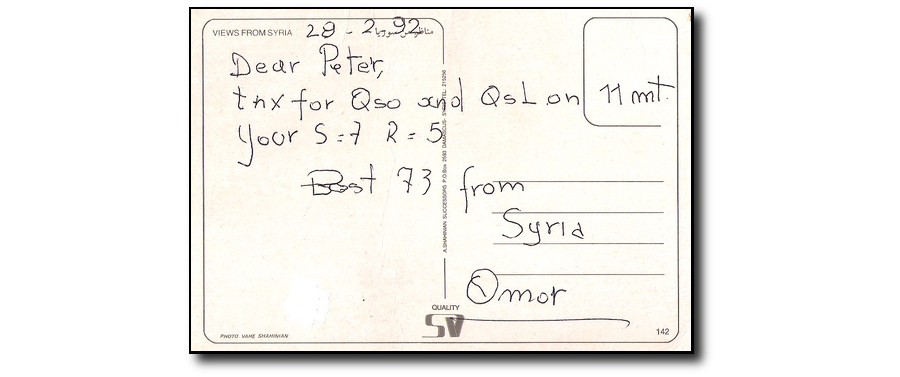 VIEWS FROM SYRIA
مناظر من سوريا
28 - 2 - 92
Dear Peter,
tnx for Qso and QsL on 11 mt.
your S=7 R=5
Best 73 from
Syria
Omar
A.SHAHINIAN SUCCESSORS P.O.Box 2593 DAMASCUS- SYRIA TEL. 215256
QUALITY
SV
PHOTO VAHE SHAHINIAN
142